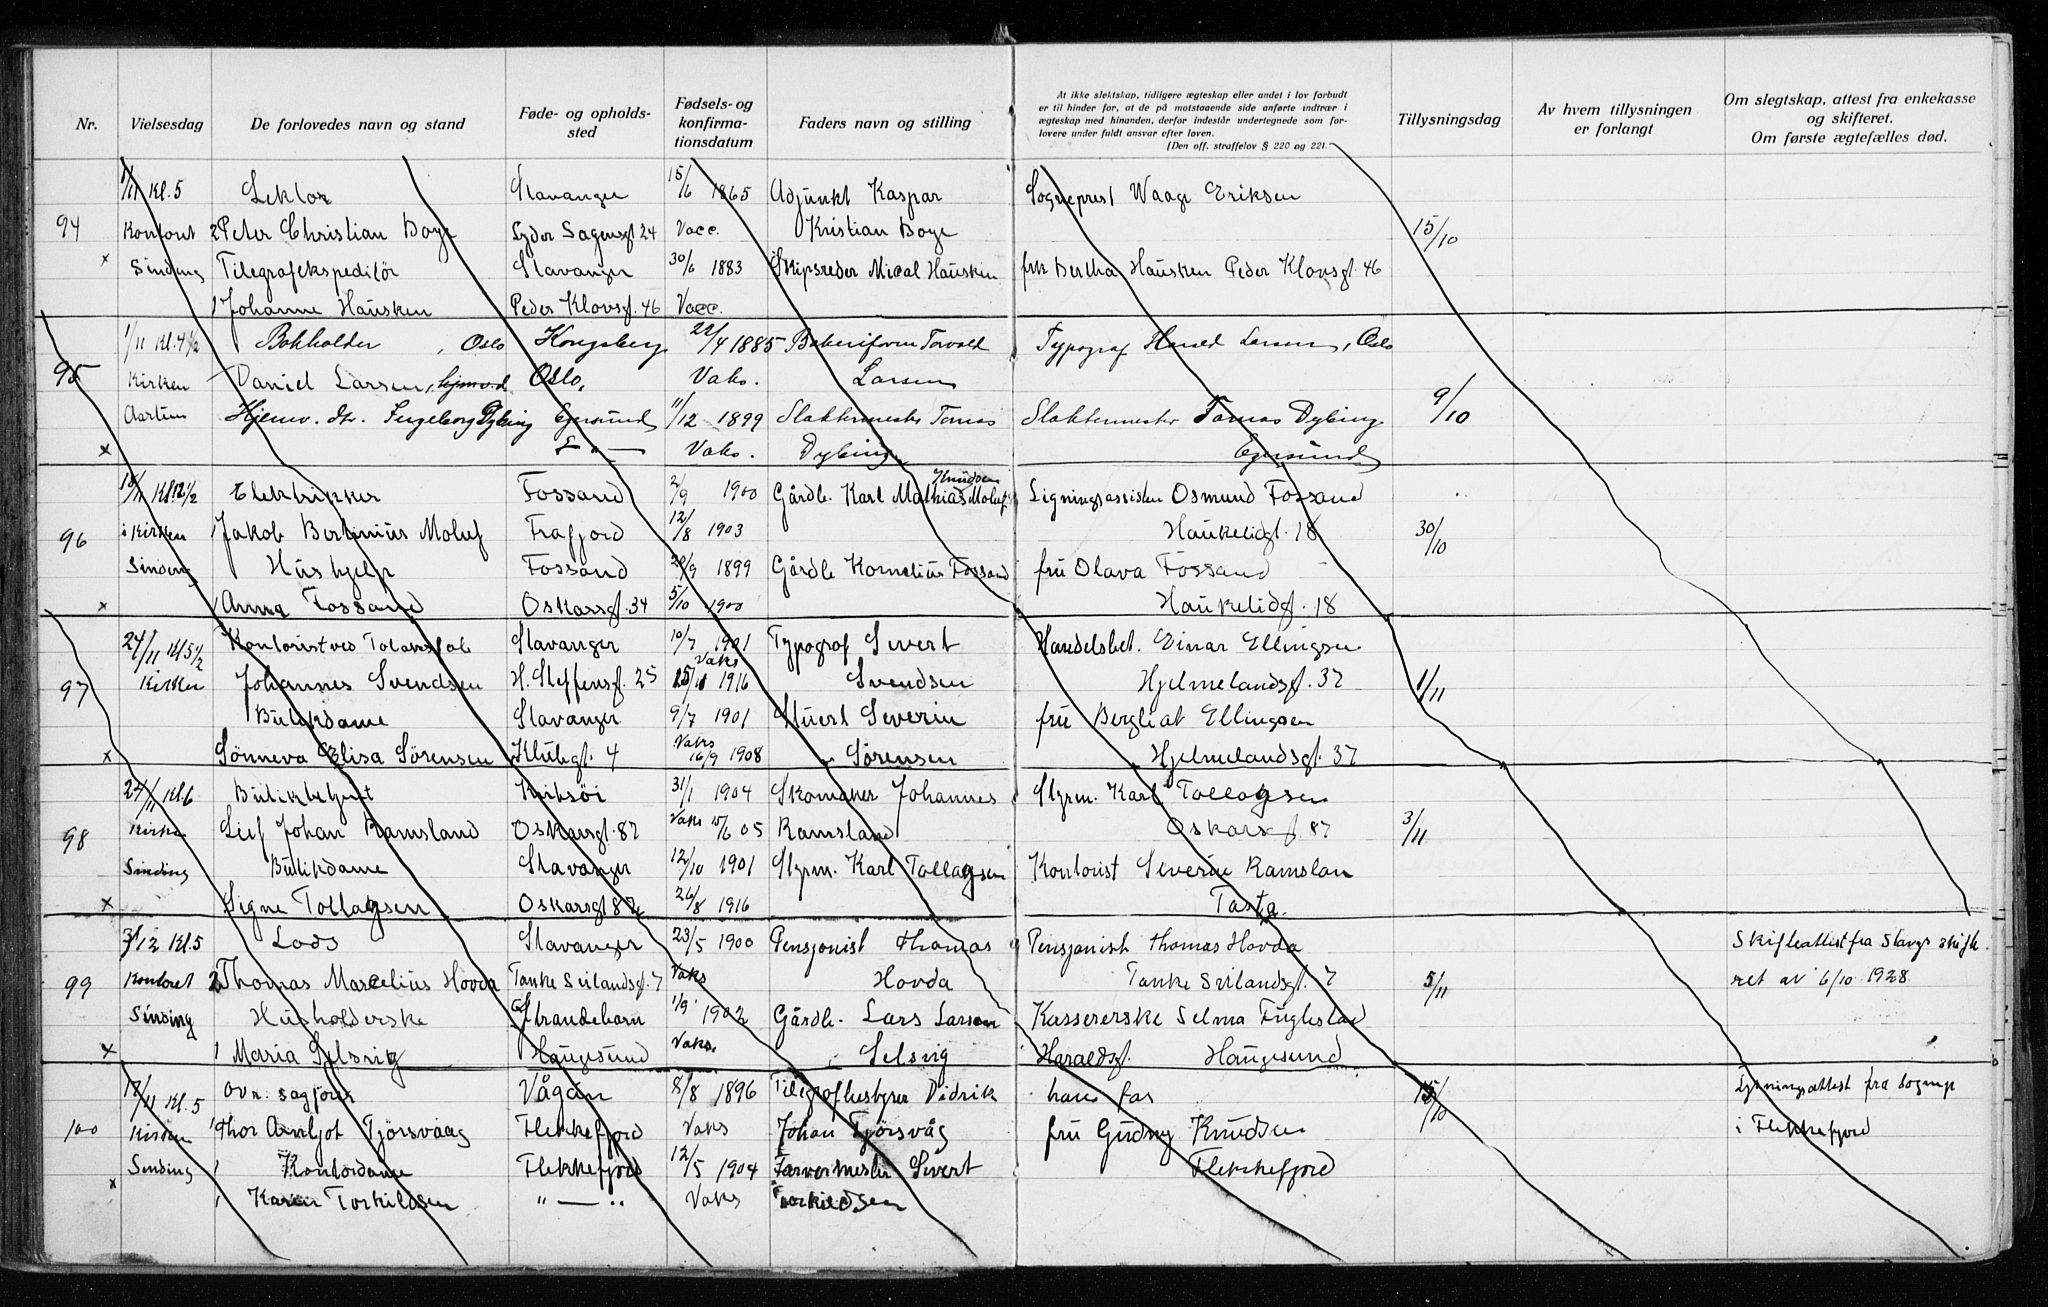 Nr. Vielsesdag De forlovedes navn og stand Føde- og opholds-sted Fødsels- og konfirma-tionsdatum Faders navn og stilling
At ikke slektskap, tidligere ægteskap eller andet i lov forbudt
er til hinder for, at de på motstaaende side anførte indtrær i
ægteskap med hinanden, derfor indestår undertegnede som for-
lovere under fuldt ansvar efter loven.
(Den off. straffelov § 220 og 221.
Tillysningsdag
Av hvem tillysningen er forlangt
Om slegtskap, attest fra enkekasse og skifteret.
Om første ægtefælles død.
1/11 Kl. 5 Lektor Stavanger 15/6 1865 Adjunkt Kaspar Sogneprest Waage Eriksen
94 Kontoret 2 Peter Christian Boye Lyder Sagensgt 24 Vacc. Kristian Boye 15/10
x Sinding Telegrafekspeditør Stavanger 30/6 1883 Skipsreder Mical Hausken frk Bertha Hausken Peder Klovsgt. 46
1 Johanne Hausken Peder Klovsgt. 46 Vacc.
1/11 Kl. 4 1/2 Bokholder, Oslo Kongsberg 22/4 1885 Torvald Typograf Harald Larsen, Oslo
95 Kirken Daniel Larsen, Oslo, Vaks. Larsen
Hjemv. dtr. Ingeborg Dybing Egersund 11/12 1899 Slaktermester Tomas Slaktermester Tomas Dybing 9/10
x — " — Vaks. Dybing Egersund
Kl 12 1/2 Elektrikker Fossand 2/9 1900 Gårdb. Karl Mathias Knudsen Moluf Ligningsassisten Osmund Fossand
96 i Kirken 1 Jakob Bertinius Moluf Frafjord 12/8 1903 Haukeligt. 18 30/10
Sinding Hushjelp Fossand 20/9 1899 Gårdb Kornelius Fossand fru Olava Fossand
x 1 Anna Fossand Oskarsgt. 34 5/10 1900 Haukelidgt. 18
24/11 Kl 5 1/2 Kontorist ved Stavanger 10/7 1901 Typograf Sivert Handelsbet. Einar Ellingsen
97 Kirken Johannes Svendsen H. Steffensgt. 25 Vaks 15/11 1916 Svendsen Hjelmelandsgt. 37 1/11
Butikdame Stavanger 9/7 1901 Severin fru Bergliot Ellingsen
x Sønneva Elisa Sørensen Klubgt. 4 Vaks 16/9 1908 Sørensen Hjelmelandsgt. 37
24/11 Kl 6 Butikbetjent Kvitsöi 31/1 1904 Skomaker Johannes Styrm. Karl Tollagsen
98 Kirke Leif Johan Ramsland Oskarsgt. 82 Vaks 15/6 05 Ramsland Oskarsgt. 82 3/11
Sinding Butikdame Stavanger 12/10 1901 Styrm. Karl Tollagsen Kontorist Severin Ramslan
x Signe Tollagsen Oskarsgt 82 26/8 1916 Tasta.
3/12 Kl. 5 Lods Stavanger 23/5 1900 Pensjonist Thomas Pensjonist Thomas Hovda Skifteattest fra Stavgr skift-
99 Kontoret 2 Thomas Marcelius Hovda Tanke Svilandsgt. 7 Vaks Hovda Tanke Svilandsgt. 7 5/11 ret av 6/10 1928.
Sinding Husholderske Strandebarm 1/9 1902 Gårdb. Lars Larsen Kassererske Selma Fuglestad
x 1 Maria Selsvig Haugesund Vaks. Selsvig Haraldsgt. Haugesund
12/11 Kl. 5 Ovr. sagfører Vågan 8/8 1896 Telegrafbestyrer Didrik hans far 15/10 Lysningsattest fra sognep
100 Kirken 1 Thor Arnljot Tjörsvaag Flekkefjord Vaks Johan Tjörsvåg fru Gudny Knudsen i Flekkefjord
x Sinding 1 Kontordame Flekkefjord 12/5 1904 Farvermester Sivert Flekkefjord
1 Karen Torkildsen " — " Vaks Torkildsen